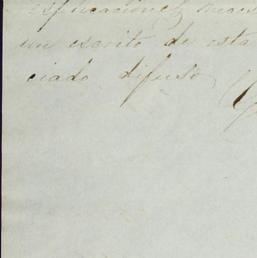 explicaciones
un escrito de esta
ciado difuso